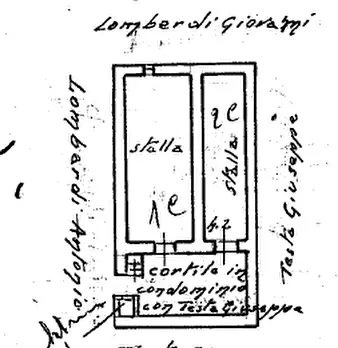 Lombardi Giovanni
Lombardi Antonio
stalla
1C
2C
stalla
h.2
Testa Giuseppe
cortile in
condominio
con Testa Giuseppe